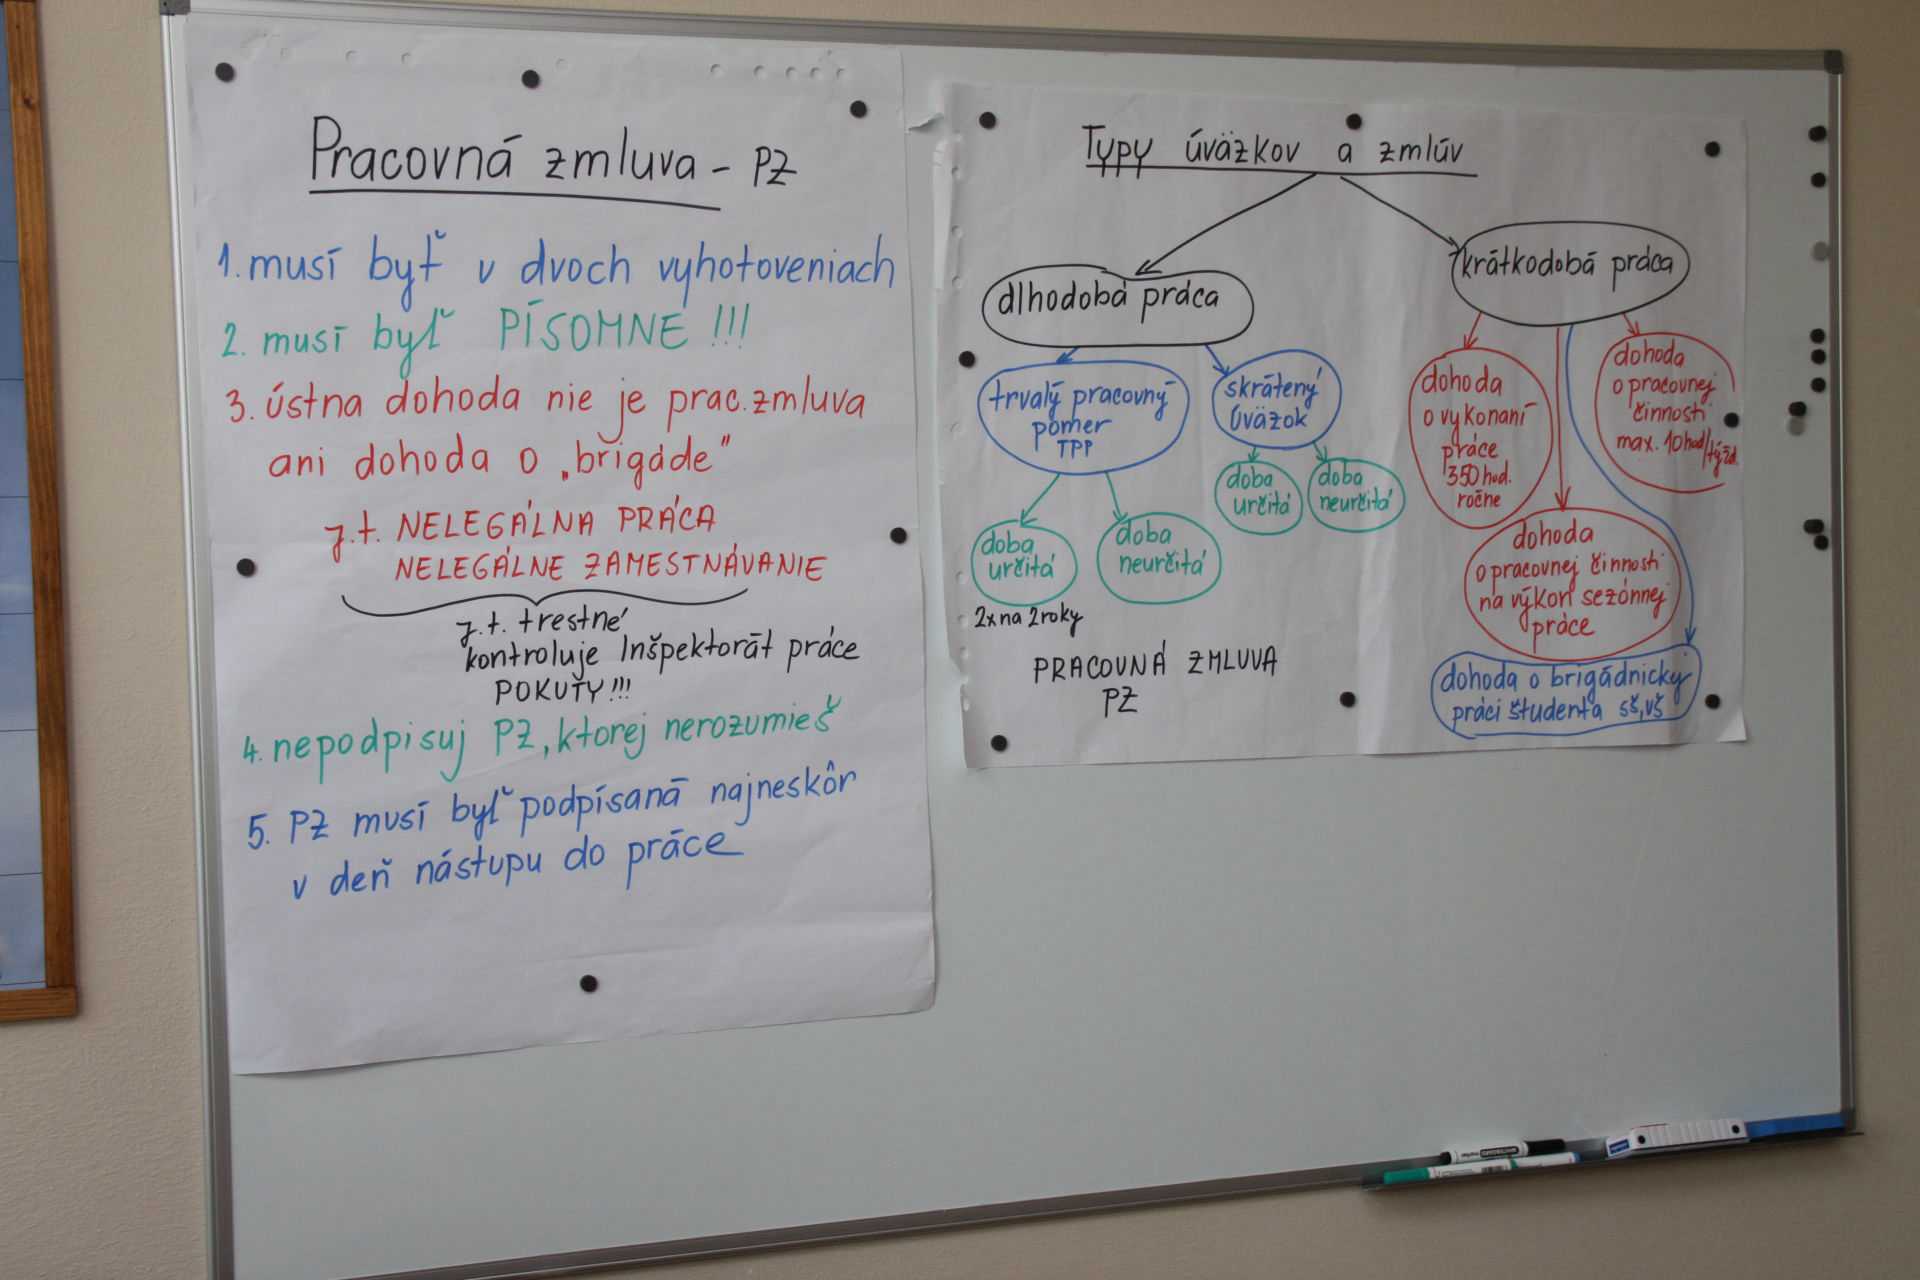 Pracovná zmluva - PZ
1. musí byť v dvoch vyhotoveniach
2. musí byť PÍSOMNE !!!
3. ústna dohoda nie je prac. zmluva
ani dohoda o „brigáde"
j.t. NELEGÁLNA PRÁCA
NELEGÁLNE ZAMESTNÁVANIE
j.t. trestné
kontroluje Inšpektorát práce
POKUTY!!!
4. nepodpisuj PZ, ktorej nerozumieš
5. PZ musí byť podpísaná najneskôr
v deň nástupu do práce
Typy úväzkov a zmlúv
dlhodobá práca
trvalý pracovný
pomer
TPP
doba
určitá
2x na 2roky
doba
neurčitá
skrátený
úväzok
doba
určitá
doba
neurčitá
PRACOVNÁ ZMLUVA
PZ
krátkodobá práca
dohoda
o vykonaní
práce
350 hod.
ročne
dohoda
o pracovnej činnosti
na výkon sezónnej
práce
dohoda
o pracovnej
činnosti
max. 10hod/týžd.
dohoda o brigádnickej
práci študenta sš, vš